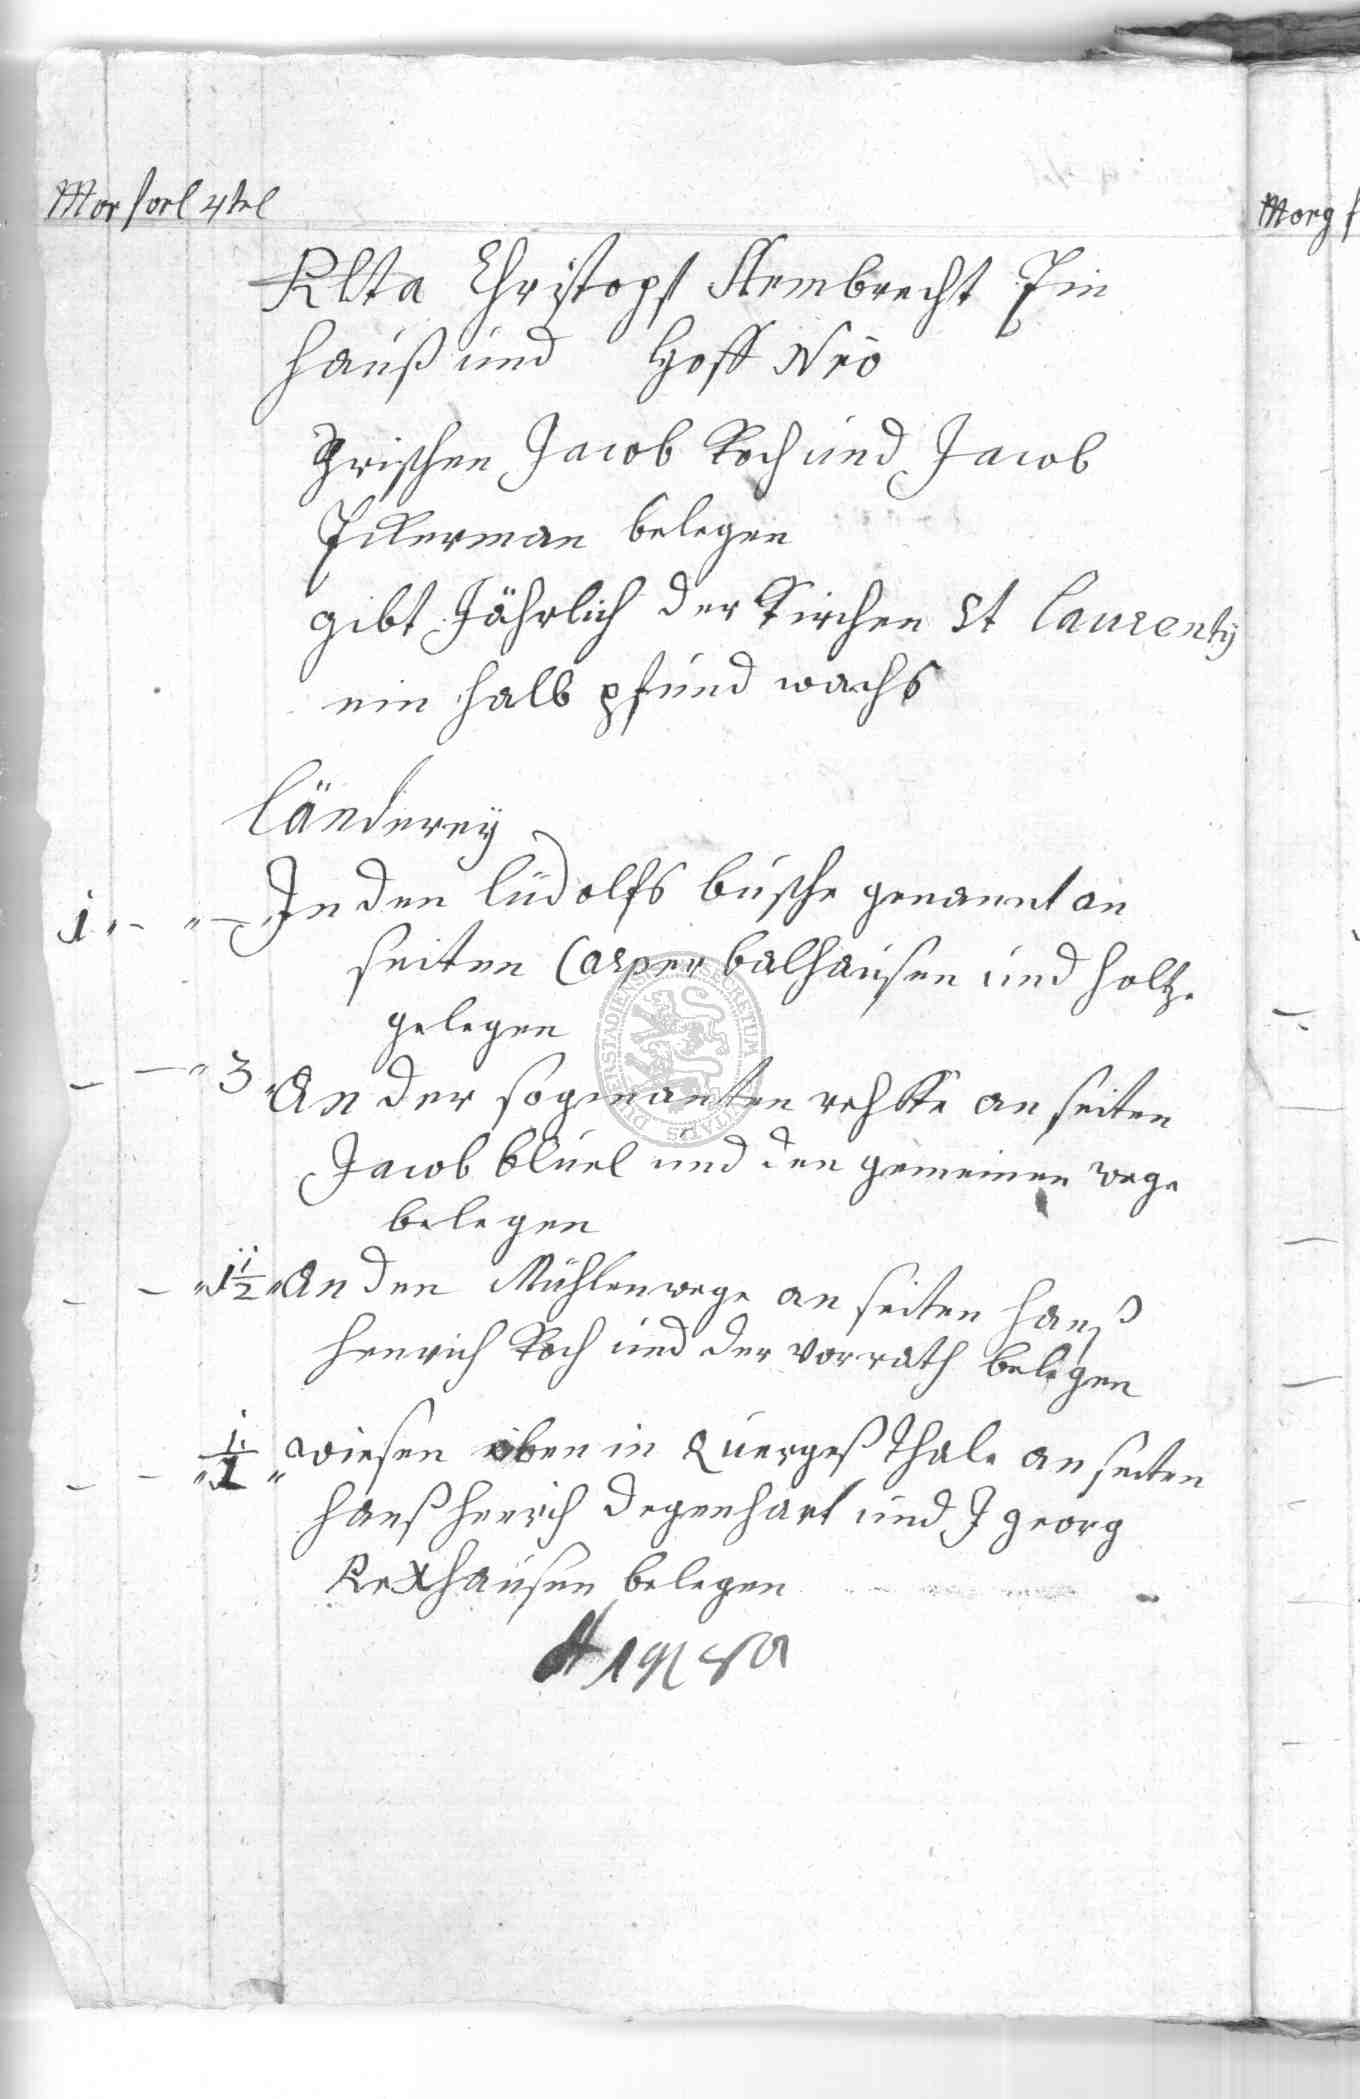 Mor forl 4tel
Morg f
Christoph Hembrecht Ein
Hauß und Hoff Nro
Zwischen Jacob Koch und Jacob
Ickerman belegen
gibt Jährlich der Kirchen St Laurentÿ
ein halb pfund wachs
Länderey
1 In den Ludolfs busche genannt an
seiten Casper balhausen und holtze
gelegen
3 An der sogenanten an seiten
Jacob bluel und den gemeinen wege
belegen
1½ An den Mühlenwege an seiten Hanß
Henrich Koch und der Vorrath belegen
wiesen oben in Quergeß Thale an seiten
Hanß Henrich Degenhart und J Georg
Rexhausen belegen
DUDERSTADIENSIS SECRETUM CIVITATIS